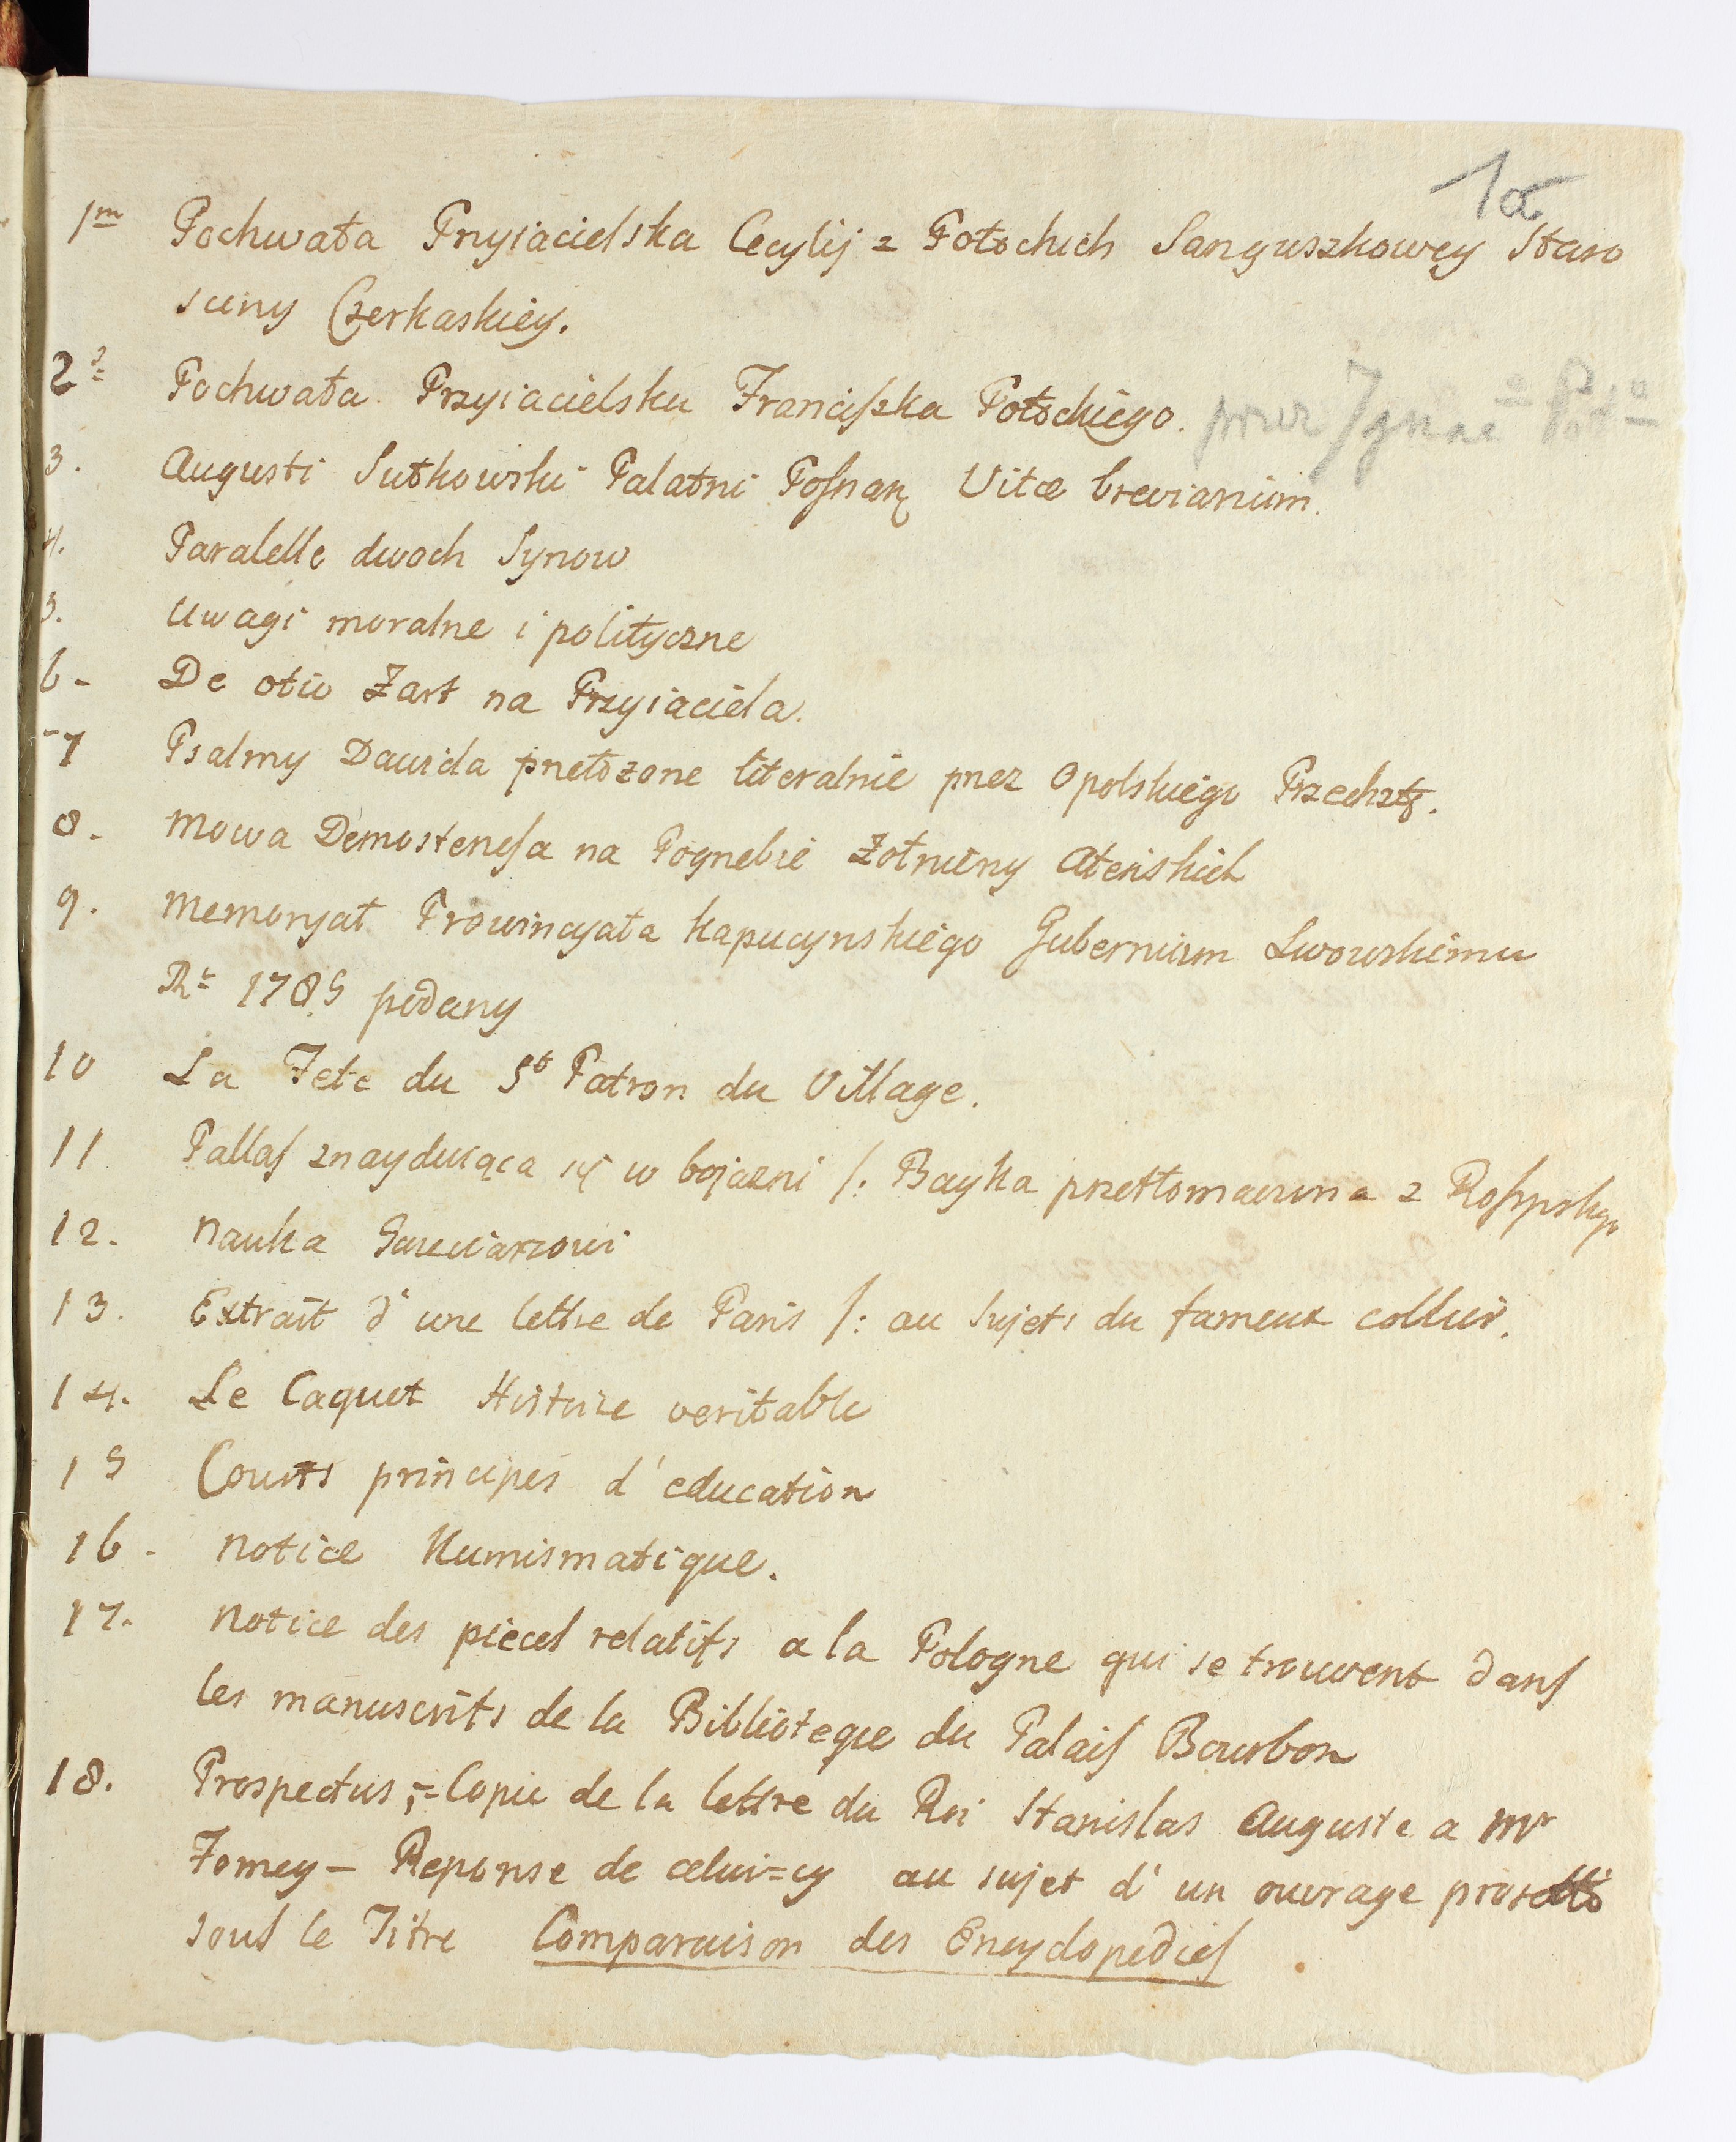 1a
1m Pochwała Pryiacielska Cecylij z Potockich Sanguszkowey Staro
sciny Czerkaskiey.
2 Pochwała Przyiacielska Franciszka Potockiego. przez Ignac Pot
3. Augusti Sułkowski Palatni Posnan Vitæ breviarium.
4. Paralelle dwoch Synow
5. Uwagi moralne i polityczne
6 - De otio Żart na Przyiaciela.
7 Psalmy Dawida pnełozone literalnie pnez Opolskiego
8. Mowa Demostenesa na Pognebie Żołnieny Ateńskich
9. Memoryał Prowincyała Kapucynskiego Gubernium Lwowskiemu
R 1785 podany
10 La Fete du St Patron du Village.
11 Pallas znayduiąca się w bojazni /: Bayka przetłomaczona z Rossyskgo
12. Nauka
13. Extrait d'une lettre de Paris /: au Sujets du fameux collier.
14. Le Caquet Histoire veritable
15 Courts principes d'education
16 - Notice Numismatique.
17. Notice des pieces relatifs a la Pologne qui se trouvent dans
les manuscrits de la Biblioteque du Palais Bourbon
18. Prospectus,= Copie de la lettre du Roi Stanislas Auguste a Mr
Formey - Reponse de celui=cy au sujet d'un ouvrage
sous le Titre Comparaison des Encyclopedies.